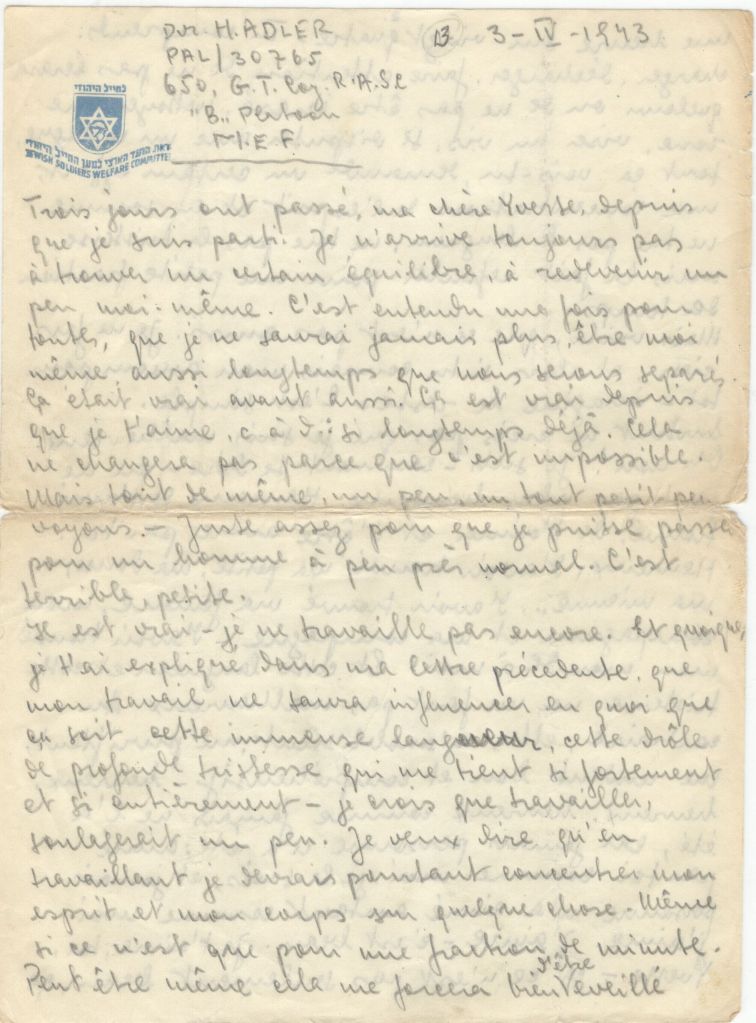 Dvr. H. ADLER
PAL/30765
650, G.T. Coy. R.A.SC
"B„ Platoon
M.E.F.
13 3-IV-1943
לחייל היהודי
הועד הארצי למען החייל היהודי
JEWISH SOLDIERS WELFARE COMMITTEE
Trois jours ont passé, ma chère Yvette, depuis
que je suis parti. Je n'arrive toujours pas
à trouver un certain équilibre, à redevenir un
peu moi-même. C'est entendu une fois pour
toutes, que je ne saurai jamais plus, être moi
même aussi longtemps que nous serons separés.
Ça etait vrai avant aussi. Ça est vrai depuis
que je t'aime, c à d : si longtemps déjà. Cela
ne changera pas parce que c'est impossible.
Mais tout de même, un peu, un tout petit peu
voyons. — Juste assez pour que je puisse passer
pour un homme à peu près normal. C'est
terrible, petite.
Il est vrai – je ne travaille pas encore. Et quoique,
je t'ai expliqué dans ma lettre précedente, que
mon travail ne saura influencer en quoi que
ça soit cette immense langueur, cette drôle
de profonde tristesse qui me tient si fortement
et si entièrement – je crois que travailler,
soulagerait un peu. Je veux dire qu'en
travaillant je devrais pourtant concentrer mon
esprit et mon corps sur quelque chose. Même
si ce n'est que pour une fraction de minute.
Peut être même cela me forcera bien d'être eveillé